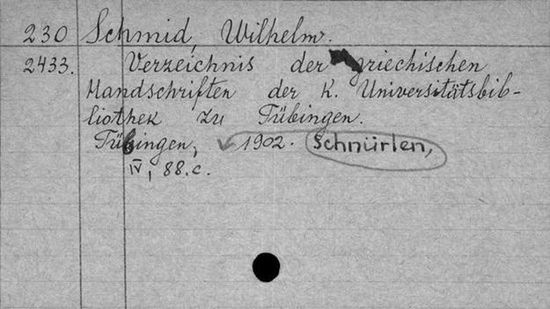 230 Schmid, Wilhelm.
2433. Verzeichnis der griechischen
Handschriften der K. Universitätsbib-
liothek zu Tübingen.
Tübingen, 1902. Schnürlen,
IV, 88.c.